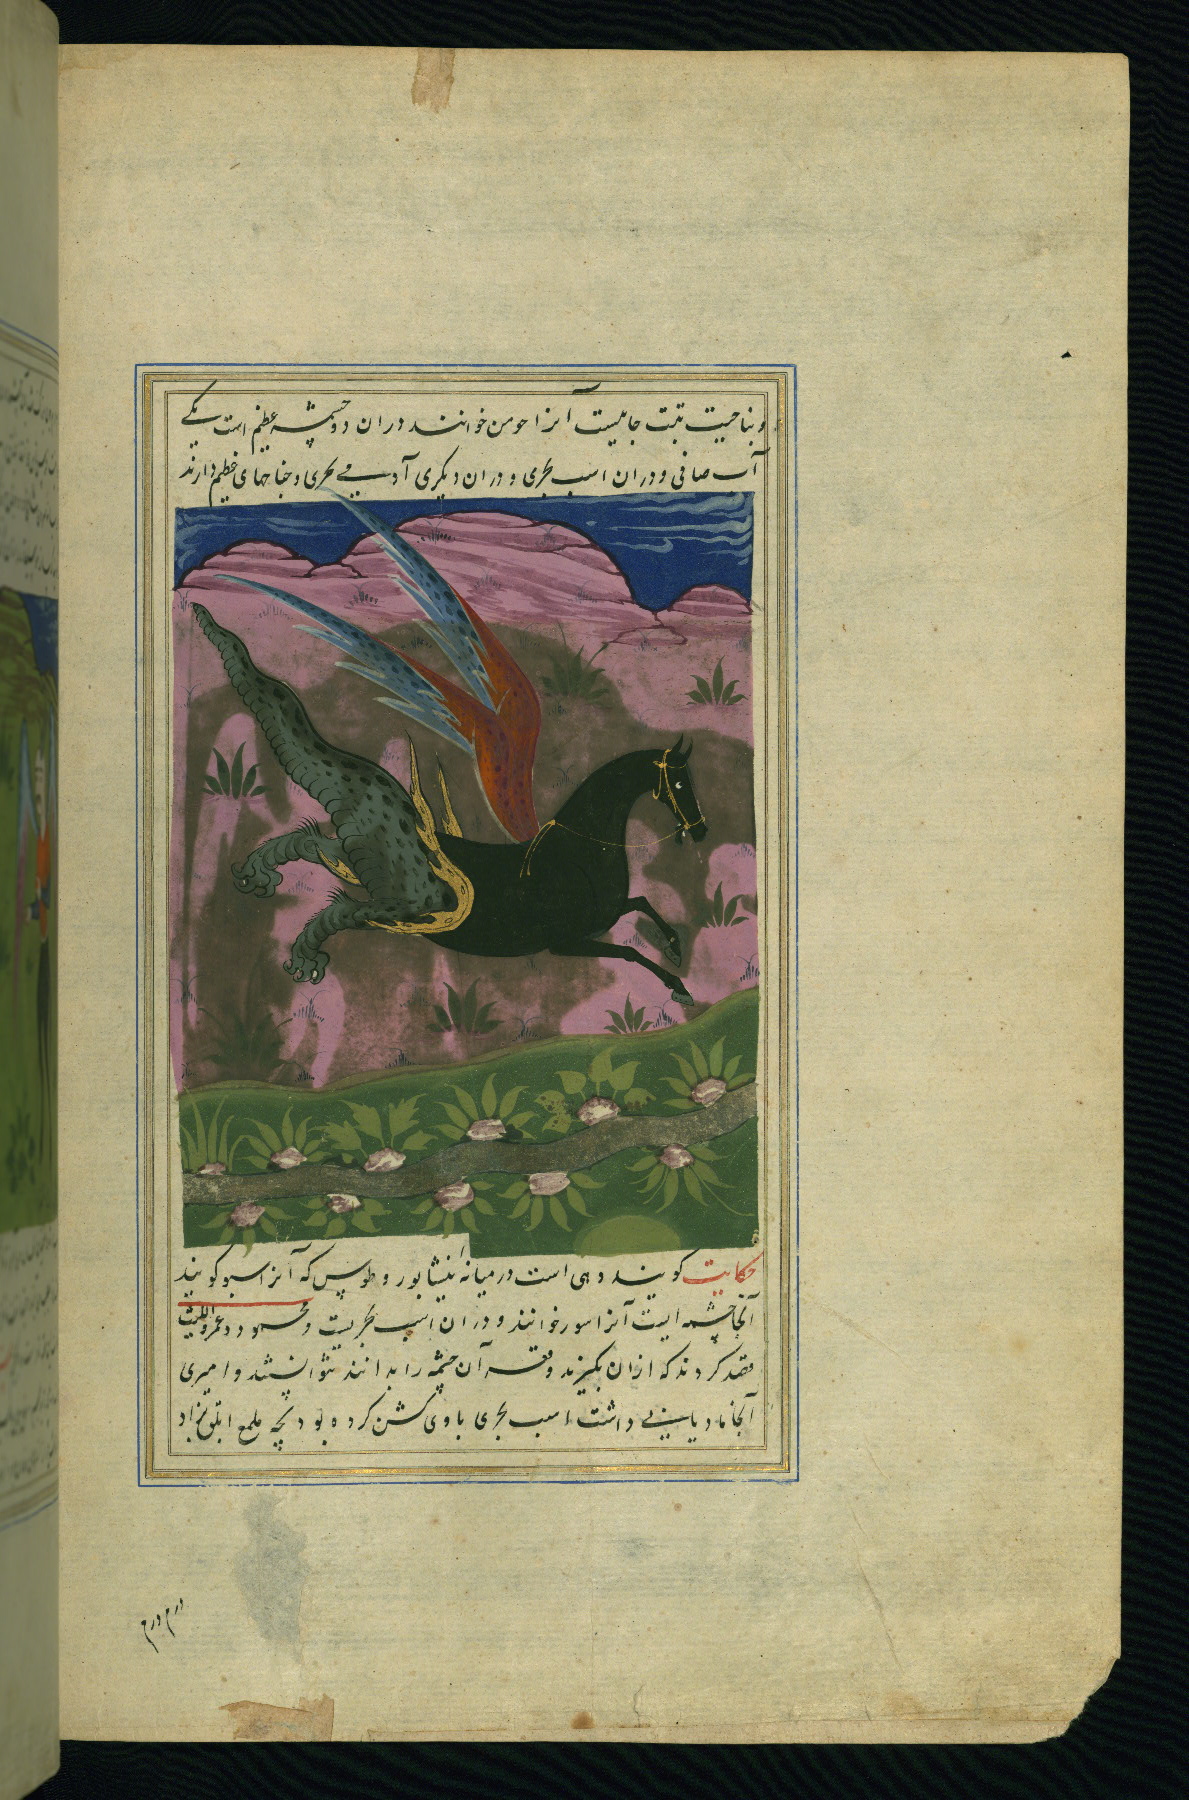 و بناحیت تبت جاییست آنرا حومن خوانند دران دو چشمه عظیم است یکی
آب صافی و دران اسب بحری و دران دیکری آدمی بحری و جناحهای عظیم دارند
حکایت کویند دهی است در میانه نیشابور و طوس که آنرا سبو کویند
آنجا چشمه ایست آنرا سور خوانند و دران اسب بحریست و محمود و عمرو اللیث
قصد کردند که ازان بکیرند و قعر آن چشمه را بدانند نتوانستند و امیری
آنجا مادیانی داشت اسب بحری با وی کشن کرده بود بچه ملمع ابلق بزاد